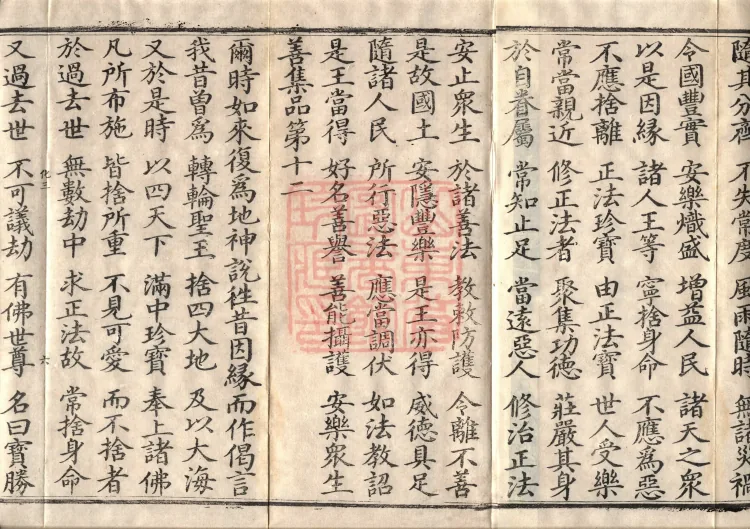 隨其分齊 不失常度 風雨隨時 無諸災禍
令國豐實 安樂熾盛 增益人民 諸天之眾
以是因緣 諸人王等 寧捨身命 不應為惡
不應捨離 正法珍寶 由正法寶 世人受樂
常當親近 修正法者 聚集功德 莊嚴其身
於自眷屬 常知止足 當遠惡人 修治正法
安止眾生 於諸善法 教敕防護 令離不善
是故國土 安隱豐樂 是王亦得 威德具足
隨諸人民 所行惡法 應當調伏 如法教詔
是王當得 好名善譽 善能攝護 安樂眾生
善集品第十二
爾時如來復為地神說往昔因緣而作偈言
我昔曾為 轉輪聖王 捨四大地 及以大海
又於是時 以四天下 滿中珍寶 奉上諸佛
凡所布施 皆捨所重 不見可愛 而不捨者
於過去世 無數劫中 求正法故 常捨身命
化三 六
又過去世 不可議劫 有佛世尊 名曰寶勝